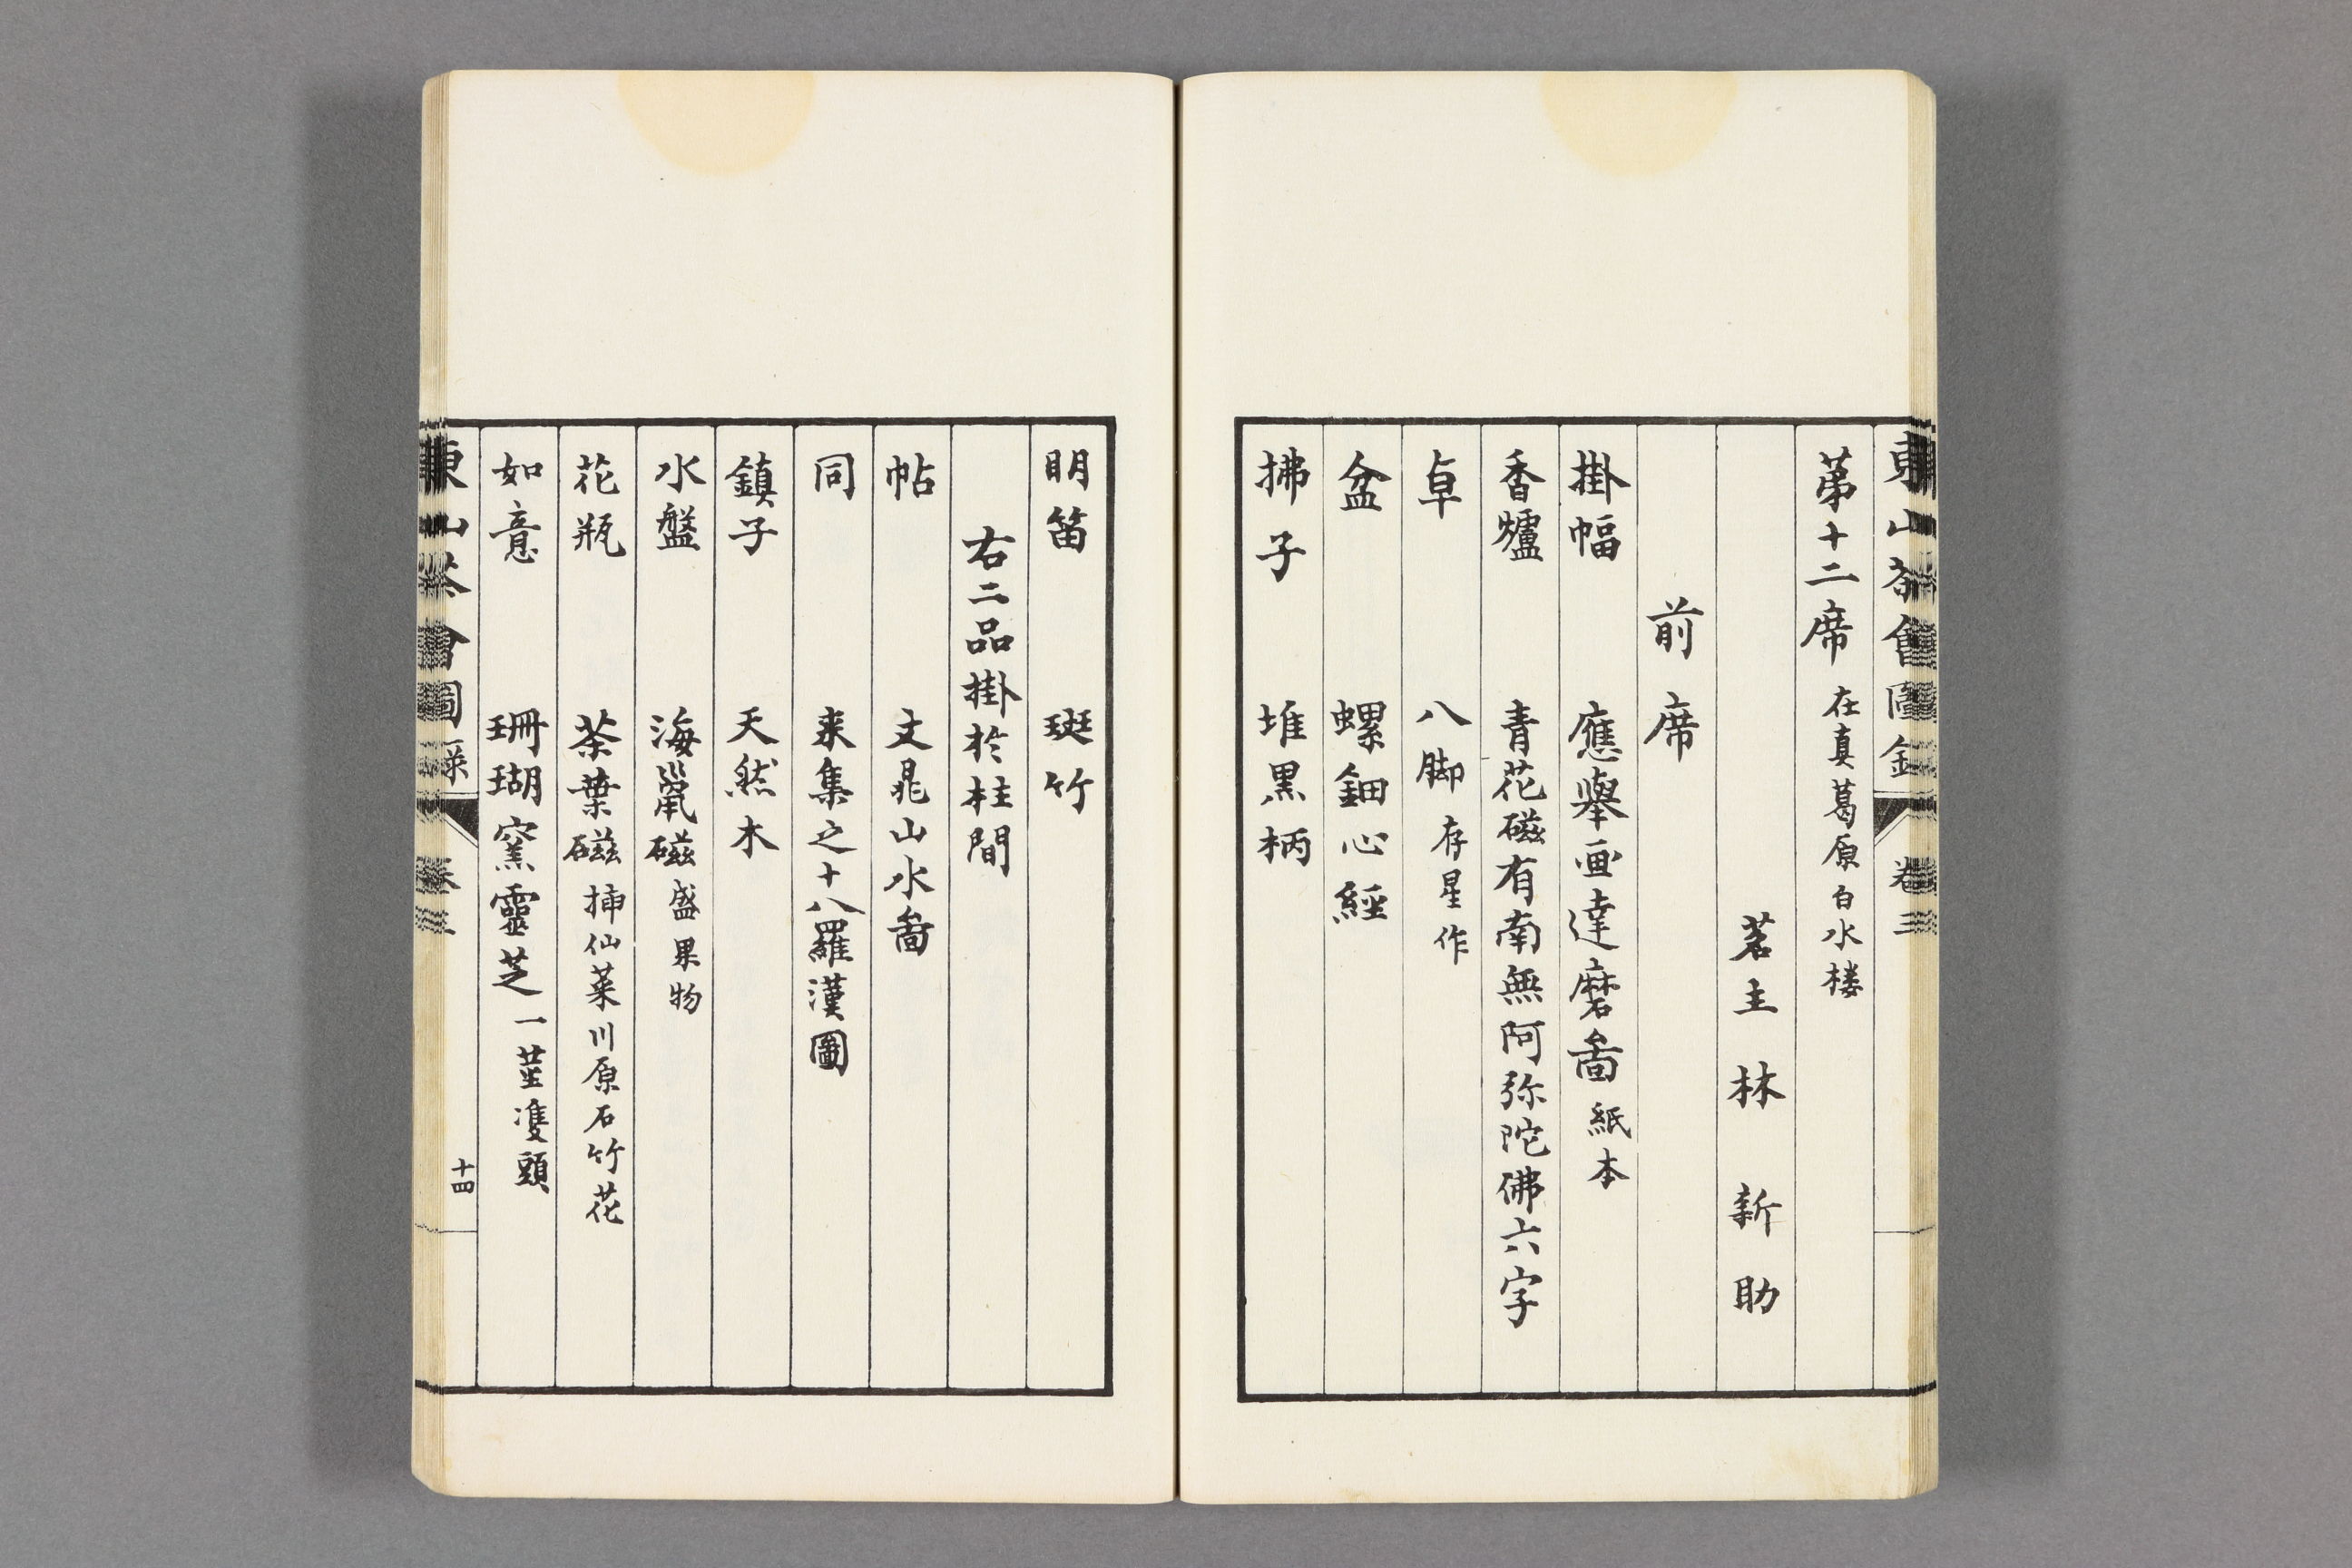 東山茶會圖錄 卷三
苐十二席 在真葛原白水楼
茗主 林 新助
前席
掛幅 應舉画達磨啚 紙本
香爐 青花磁有南無阿弥陀佛六字
卓 八脚 存星作
盆 螺鈿心經
拂子 堆黒柄
明笛 斑竹
右二品掛於柱間
帖 文晁山水啚
同 来集之十八羅漢圖
鎮子 天然木
水盤 海鼠磁 盛果物
花瓶 茶葉磁 挿仙菜川原石竹花
如意 珊瑚窯靈芝 一莖隻頭
東山茶會圖錄 卷三 十四